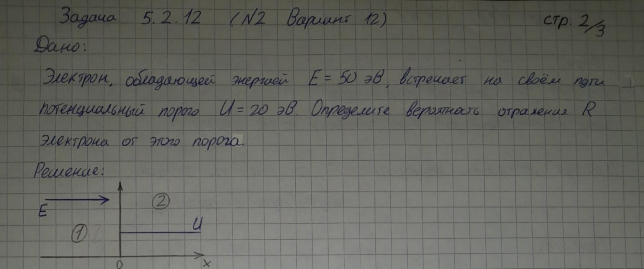 Задача 5.2.12 (N2 Вариант 12) стр. 2/3
Дано:
Электрон, обладающей энергией E = 50 эВ, встречает на своём пути
потенциальный порого U = 20 эВ. Определите вероятность отражения R
электрона от этого порога.
Решение:
E ② U
①
0 x